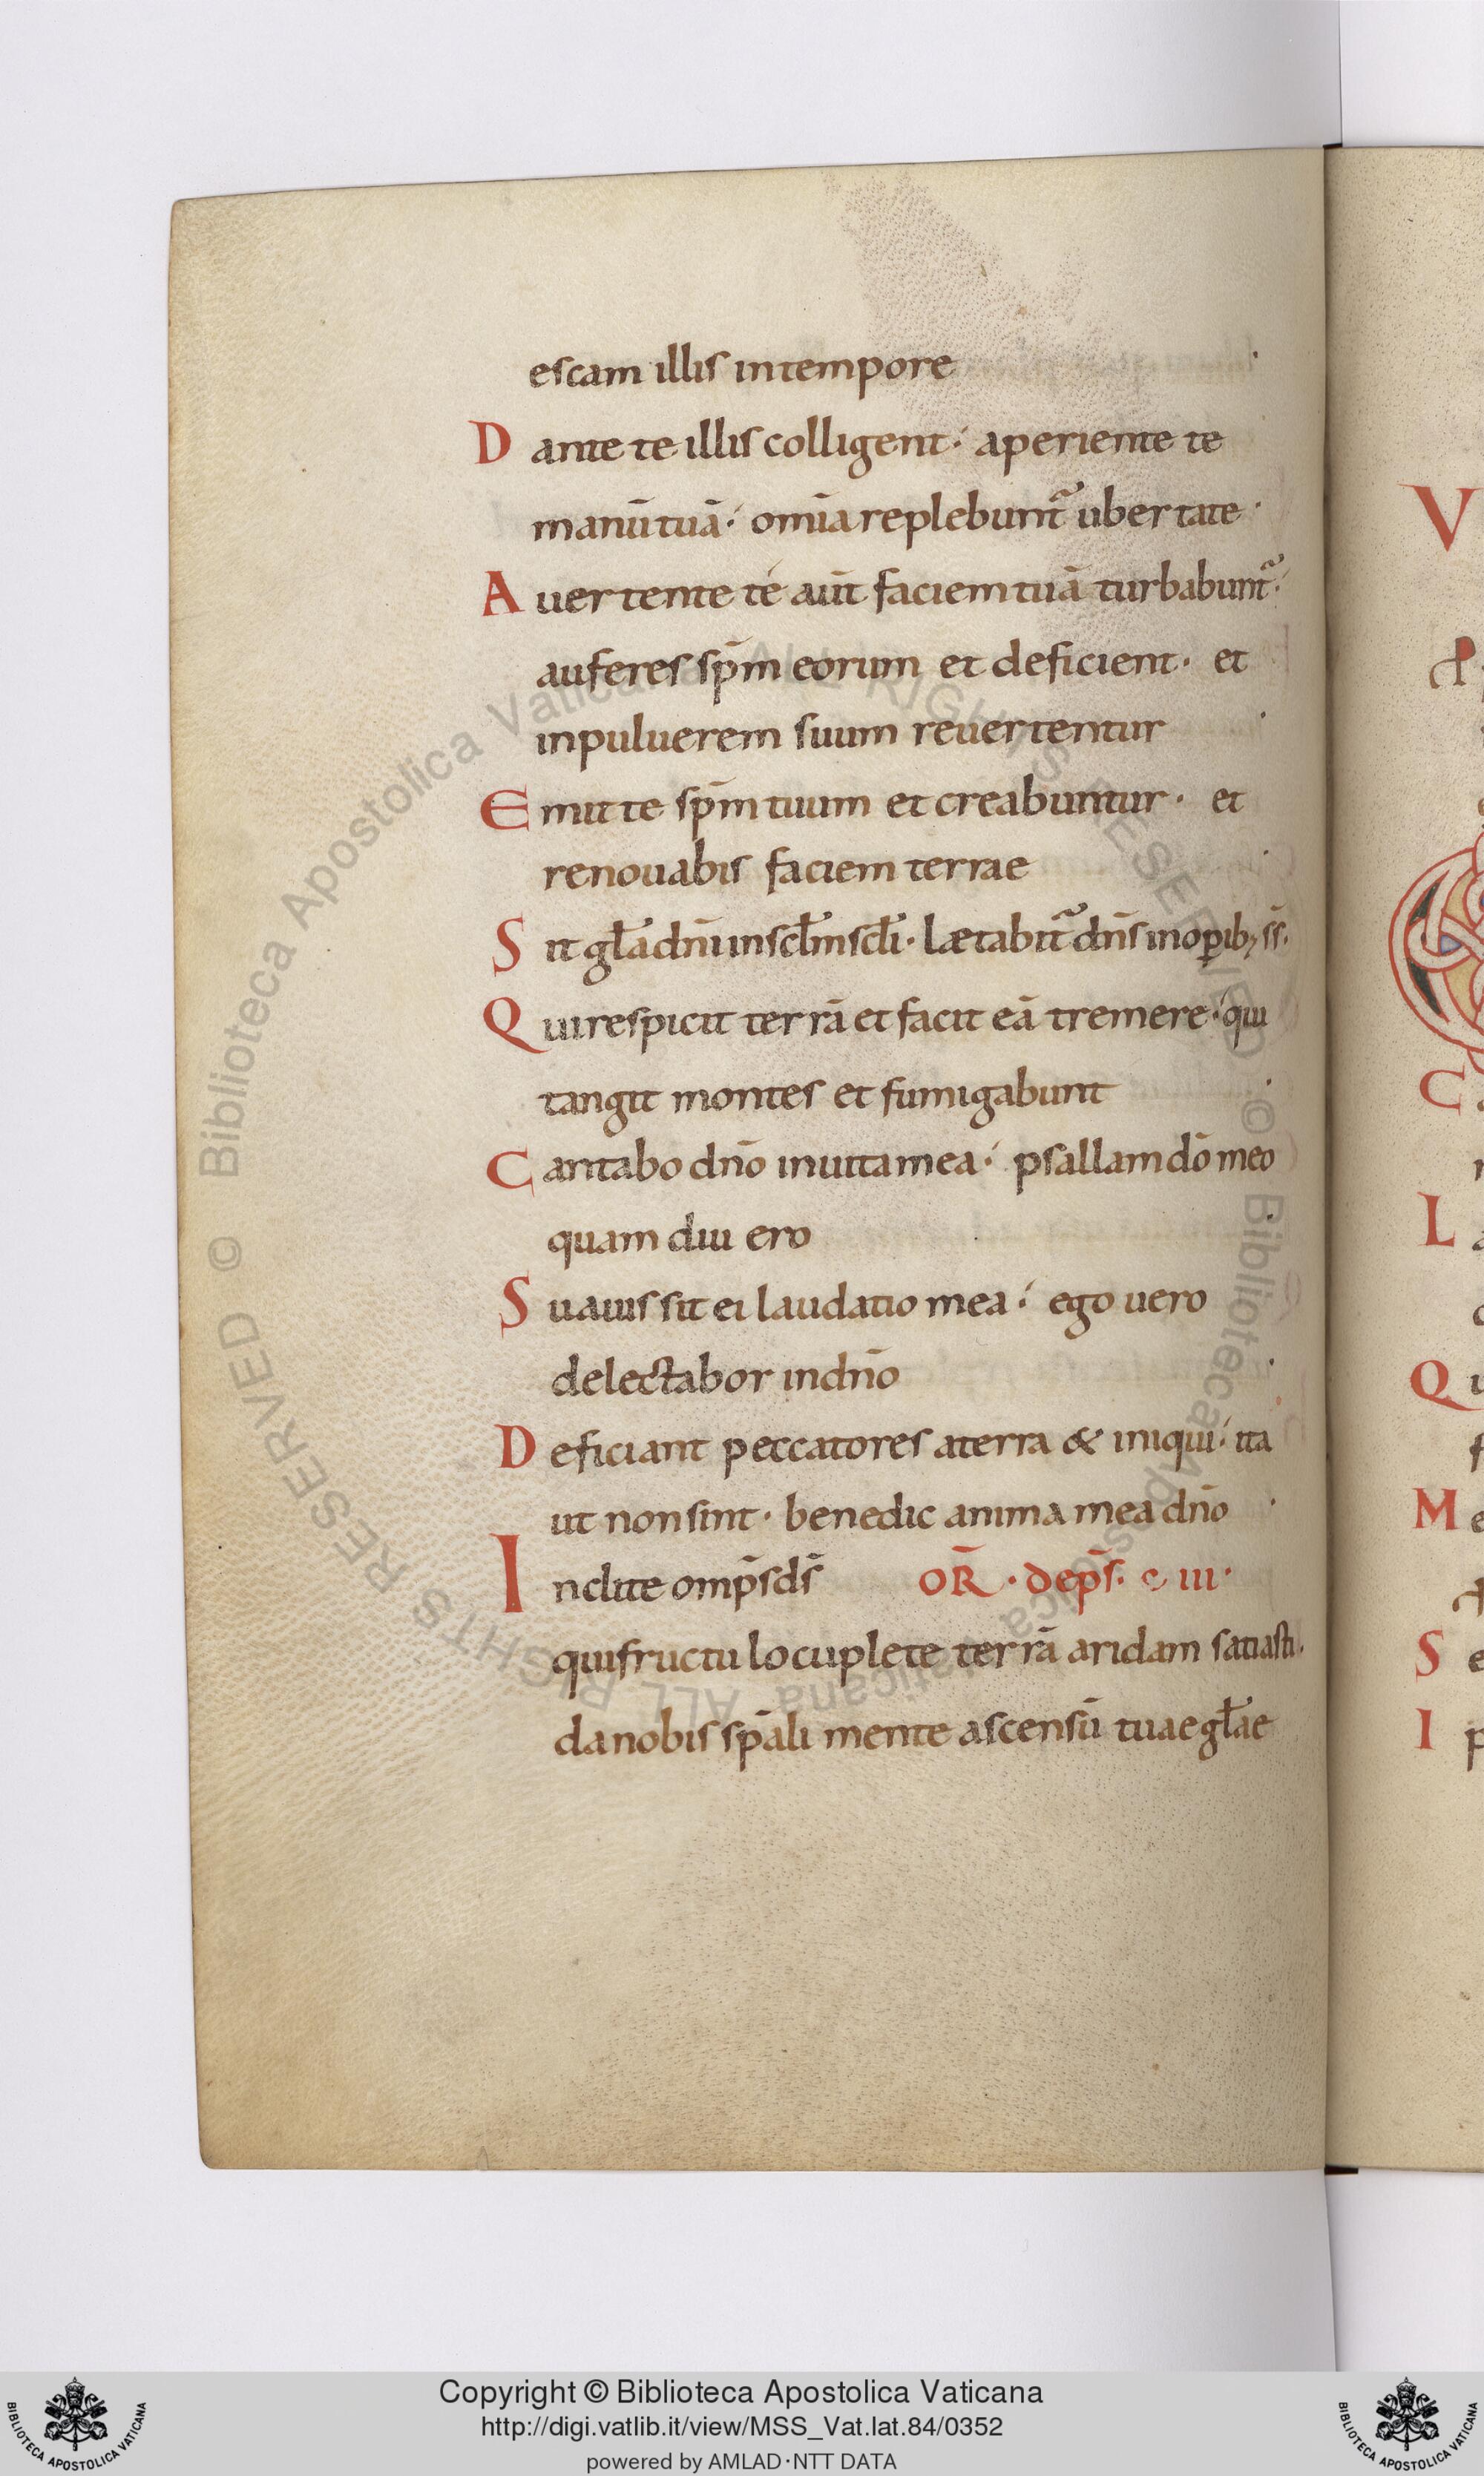 escam illis intempore
D ante te illis colligent· aperiente te
manū tuā· om̄ia replebunt᷑ ubertate·
A uertente te aūt faciem tuā turbabunt᷑·
auferes sp̄m eorum et deficient· et
inpuluerem suum reuertentur
E mitte sp̄m tuum et creabuntur· et
renouabis faciem terrae
S it gƚa dn̄i insclm̄scli· Lætabit᷑ dn̄s inop̄ib; s̄s·
Q uirespicit terrā et facit eā tremere· qui
tangit montes et fumigabunt
C antabo dn̄o inuita mea· psallam dō meo
quam diu ero
S uauis sit ei laudatio mea· ego uero
delectabor indn̄o
D eficiant peccatores aterra & iniqui· ita
ut non sint· benedic anima mea dn̄o
I nclite omp̄s ds̄ OR̄· dep̄s· c iii·
qui fructu locuplete terrā aridam satiasti·
da nobis sp̄ali mente ascensū tuae gƚae
V
C
L
Q
M
S e
I p
© Biblioteca Apostolica Vaticana ALL RIGHTS RESERVED © Biblioteca Apostolica Vaticana ALL RIGHTS RESERVED
BIBLIOTECA APOSTOLICA VATICANA
Copyright © Biblioteca Apostolica Vaticana
http://digi.vatlib.it/view/MSS_Vat.lat.84/0352
powered by AMLAD·NTT DATA
BIBLIOTECA APOSTOLICA VATICANA